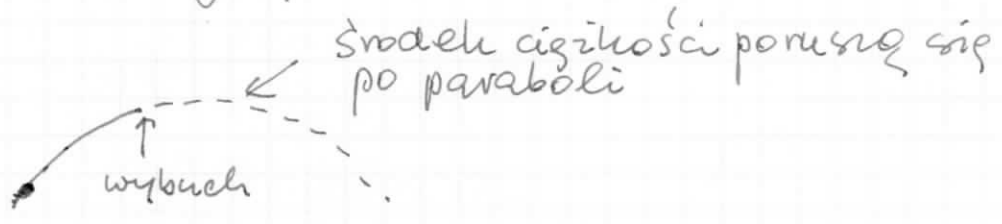 środek ciężkości poruszą się
po paraboli
wybuch